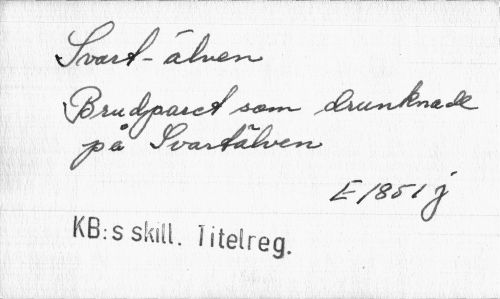 Svart-älven
Brudparet som drunknade
på Svartälven
E 1851 j
KB:s skill. Titelreg.